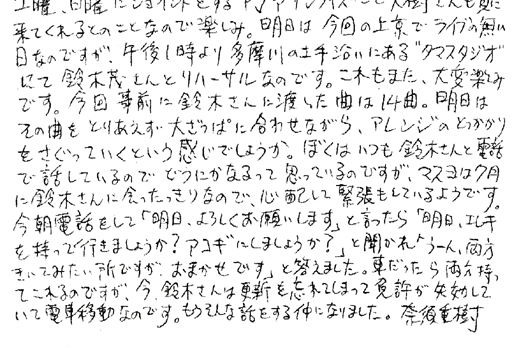 土曜、日曜にジョイントをする
来てくれるとのことなので楽しみ。明日は今回の上京でライブの無い
日なのですが、午後1時より多摩川の土手沿いにある"タマスタジオ"
にて鈴木茂さんとリハーサルなのです。これもまた、大変楽しみ
です。今回事前に鈴木さんに渡した曲は14曲。明日は
その曲をとりあえず大ざっぱに合わせながら、アレンジのとっかかり
をさぐっていくという感じでしょうか。ぼくはいつも鈴木さんと電話
で話しているのでどうにかなるって思っているのですが、マスヨは7月
に鈴木さんに会ったっきりなので、心配して緊張もしているようです。
今朝電話をして「明日、よろしくお願いします」と言ったら「明日、エレキ
を持って行きましょうか?アコギにしましょうか?」と聞かれ「うーん、両方
きいてみたい所ですが、おまかせです」と答えました。車だったら両方持っ
てこれるのですが、今、鈴木さんは更新を忘れてしまって免許が失効して
いて電車移動なのです。もうそんな話をする仲になりました。奈須重樹